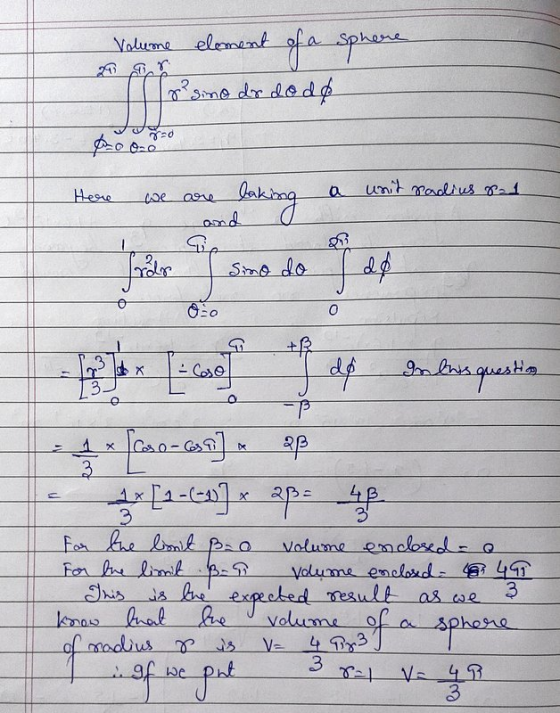 Volume element of a sphere
2π π r
∫∫∫ r² sinθ dr dθ dϕ
ϕ=0 θ=0 r=0
Here we are taking a unit radius r=1
and
1 π 2π
∫ r²dr ∫ sinθ dθ ∫ dϕ
0 θ=0 0
= [r³/3]₀¹ × [-Cosθ]₀^π ∫₋β^+β dϕ In this questio
= 1/3 × [Cos0 - Cosπ] × 2β
= 1/3 × [1-(-1)] × 2β = 4β/3
For the limit β=0 volume enclosed = 0
For the limit β=π volume enclosed = 4π/3
This is the expected result as we
know that the volume of a sphere
of radius r is V= 4/3 πr³
∴ If we put r=1 V= 4/3 π